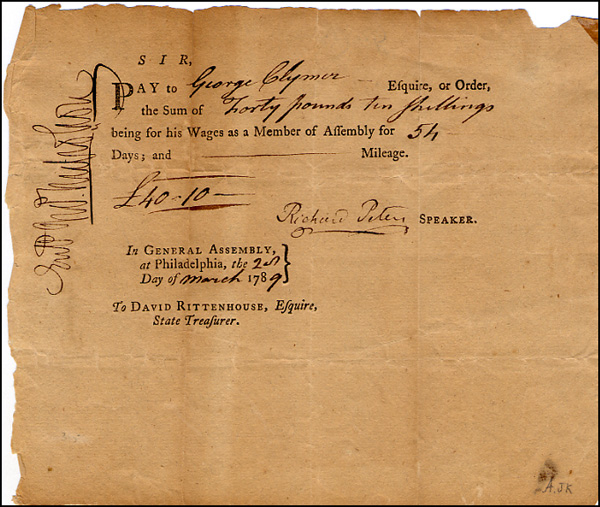 SIR,
PAY to George Clymer Esquire, or Order,
the Sum of Forty pounds ten shillings
being for his Wages as a Member of Assembly for 54
Days; and — Mileage.
£40-10-
Richard Peters SPEAKER.
In GENERAL ASSEMBLY,
at Philadelphia, the 28
Day of March 1789
To DAVID RITTENHOUSE, Eſquire,
State Treaſurer.
A.JK